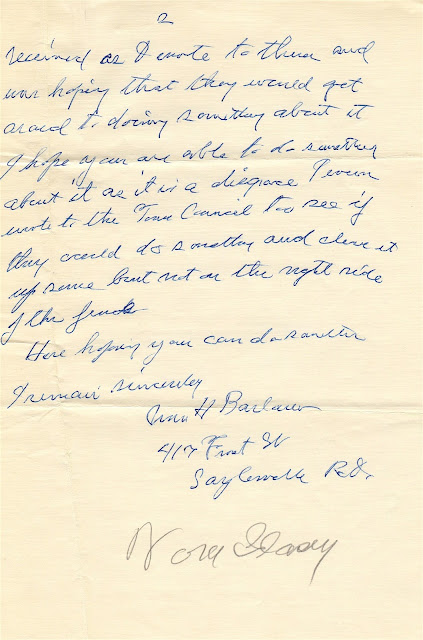 2
received as I wrote to them and
was hoping that they would get
aroud to doing something about it
I hope your are able to do something
about it as it is a disgrace I even
wrote to the Town Council too see if
they could do somethg and clean it
up some but not on the right side
of the
Here hoping you can do
I remain sincerely
H
417 Front St
Saylesville R.I.
Nora